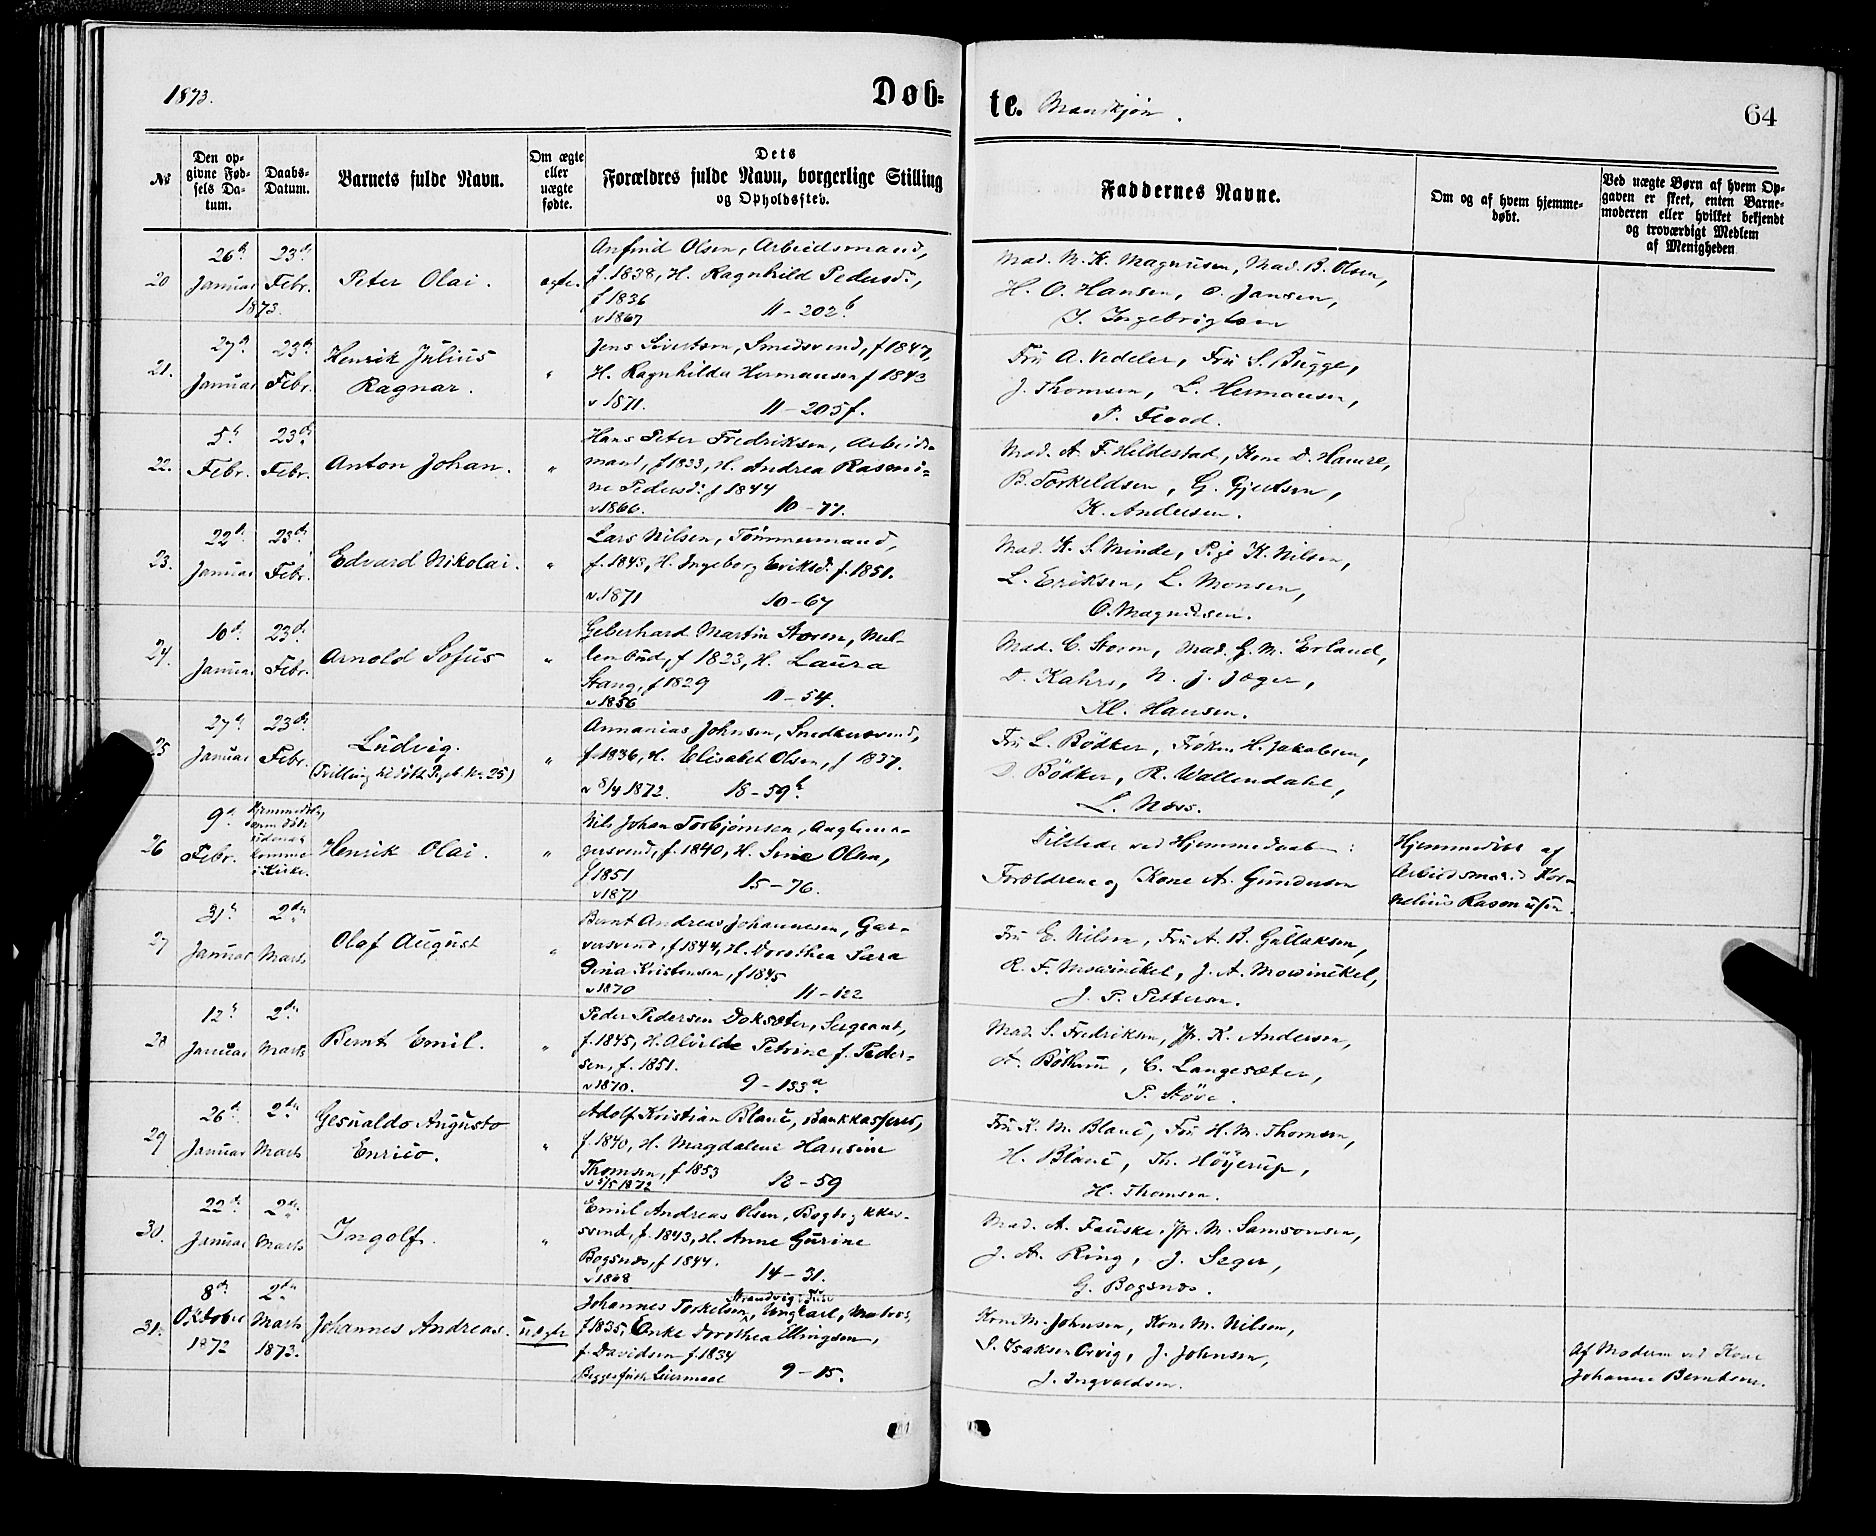 1873.
Døb=
te. Mandkjøn.
64
No
Den op-
givne Fød-
sels Da-
tum.
Daabs-
Datum.
Barnets fulde Navn.
Om ægte
eller
uægte
fødte.
Dets
Forældres fulde Navn, borgerlige Stilling
og Opholdssted.
Faddernes Navne.
Om og af hvem hjemme-
døbt.
Ved uægte Børn af hvem Op-
gaven er skeet, enten Barne-
moderen eller hvilket bekjendt
og troværdigt Medlem
af Menigheden
20
26de Januar 1873.
23de Febr.
Peter Olai.
ægte.
Anfind Olsen, Arbeidsmand,
f. 1838, H. Ragnhild Pedersd.,
f 1836
v 1867 11-202b
Mad. N. K. Magnusen, Mad. B. Olsen,
H. O. Hansen, O. Jansen,
I. Ingebrigtsen
21.
27de Januar
23de Febr.
Henrik Julius
Ragnar.
"
Jens Sivertsen, Smedsvend, f 1847,
H. Ragnhilda Hermansen f 1843
v 1871. 11-205f.
Fru A. Vedeler, Fru S. Bugge,
J. Thomsen, L. Hermansen,
P. Flood.
22.
5te Febr.
23de Febr.
Anton Johan.
"
Hans Peter Fredriksen, Arbeids-
mand, f 1833, H. Andrea Rasmi=
ne Pedersd. f 1844
v 1866. 10-77.
Mad. A. F. Hildestad, Kone D. Hamre,
B. Torkeldsen, G. Gjertsen,
K. Andersen.
23.
22de Januar
23de Febr.
Edvard Nikolai.
"
Lars Nilsen, Tømmermand,
f. 1843, H. Ingeborg Eriksd. f. 1851.
v. 1871 10-67
Mad. K. S. Minde, Pige K. Nilsen,
L. Eriksen, L. Monsen,
O. Magnusen.
24.
10de Januar
23de Febr.
Arnold Sofus
"
Geberhard Martin Storm, Mæl-
lenbud, f 1823, H. Laura
Stang, f 1829
v 1856 11-54.
Mad. C. Storm, Mad. G. M. Erland,
D. Kahrs, N. J. Jæger,
Kl. Hansen.
25
27de Januar
23de Febr.
Ludvig.
"
Annanias Johnsen, Snedkersvend,
f. 1836, H. Elisabet Olsen, f 1837.
v 8/4 1872. 18-59b
Fru L. Bödker, Frøken H. Jakobsen,
D. Bödker, R. Wallendahl,
L. Næss.
26
9de Febr.
Henrik Olai.
"
Nils Johan Torbjørnsen,
gersvend, f. 1840, H. Olsen,
f 1851
v 1871 15-76.
Tilstede ved Hjemmedaab:
Forældrene og Kone A. Gundersen
Hjemmedøbt af
Arbeidsmand Kor-
nelius Rasmusen.
27
31te Januar
2den Marts
Olaf August
"
Bernt Andreas Johannesen, Gar-
versvend, f 1844, H. Dorothea Sara
Gina Kristensen, f 1845
v 1870 11-122
Fru E. Nilsen, Fru A. B. Gullaksen,
R. F. Mowinckel, J. A. Mowinckel,
J. P. Pettersen.
28
12te Januar
2den Marts
Bernt Emil.
"
Peder Pedersen Doksæter, Sergeant,
f. 1845, H. Alvilde Petrine f. Peder-
sen, f. 1851.
v 1870. 9-133a
Mad. S. Fredriksen, Jfr. K. Andersen,
A. Böthun, C. Langesæter,
P. Støve.
29
26de Januar
2den Marts
Gesualdo Augusto
Enrico.
"
Adolf Kristian Blanc, Bankkasserer,
f. 1840, H. Magdalene Hansine
Thomsen, f 1853
v 5/5 1872 12-59
Fru K. M. Blanc, Fru H. M. Thomsen,
H. Blanc, Th. Höyerup,
H. Thomsen.
30.
22de Januar
2den Marts
Ingolf.
"
Emil Andreas Olsen, Bogtrykker-
svend, f. 1843, H. Anne Gurine
Bogsnæs, f 1844.
v 1868 14-31.
Mad. A. Fauske, Jfr. M. Samsonsen,
J. A. Ring, J. Seger,
G. Bogsnæs.
31.
8de Oktober 1872
2den Marts 1873.
Johannes Andreas.
uægte
Johannes Torkelsen, Ungkarl, Matros,
f 1835, Enke Dorothea Ellingsen,
f. Davidsen f. 1834
Begges første Leiermaal 9-15.
Kone M. Johnsen, Kone M. Nilsen,
S. Isaksen Orvig, J. Johnsen,
J. Ingvaldsen.
Af Moderen ved Kone
Johanne Berntsen.